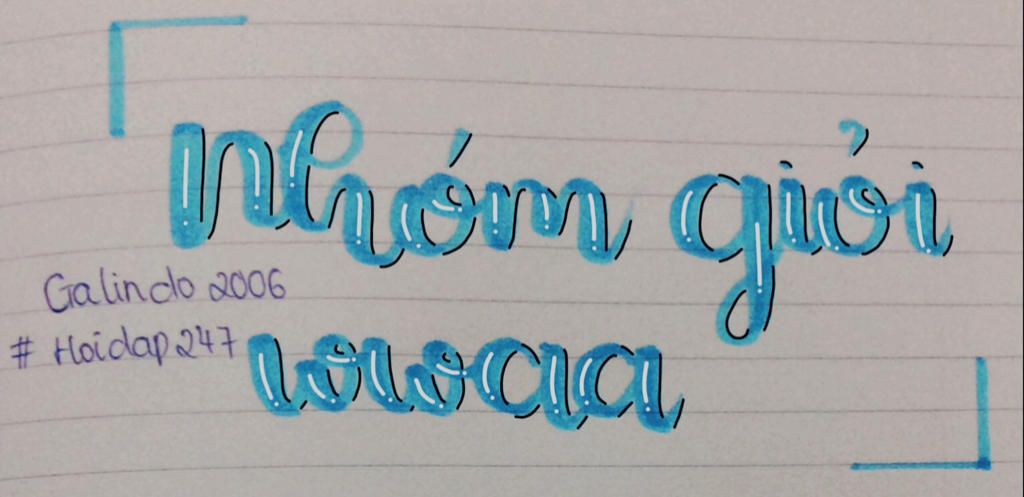 Nhóm giỏi
Galindo 2006
# Hoidap247
wwaa